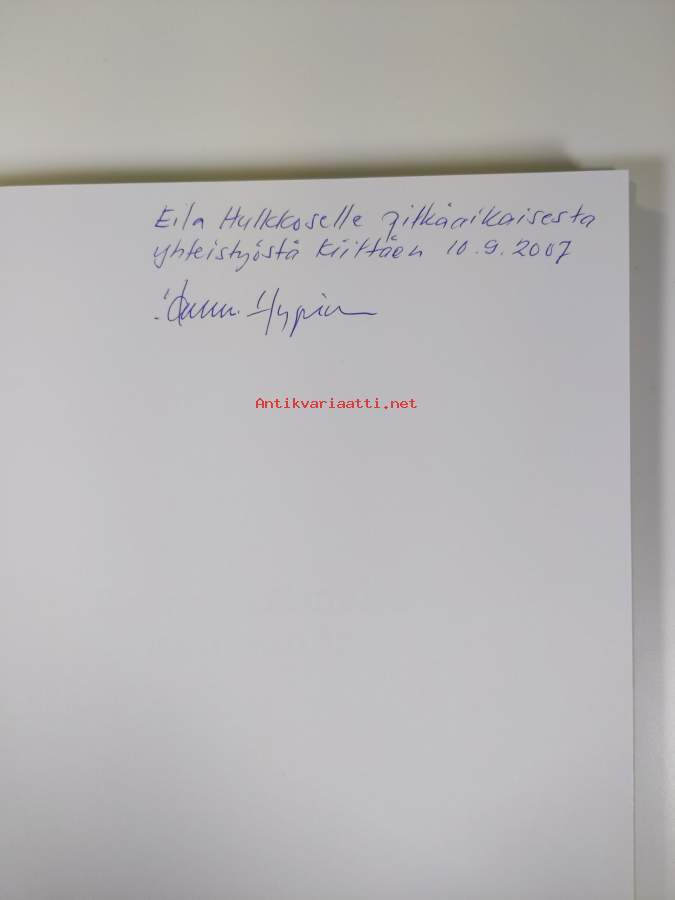 Eila Hulkkoselle pitkäaikaisesta
yhteistyöstä kiittäen 10.9.2007
Antikvariaatti.net